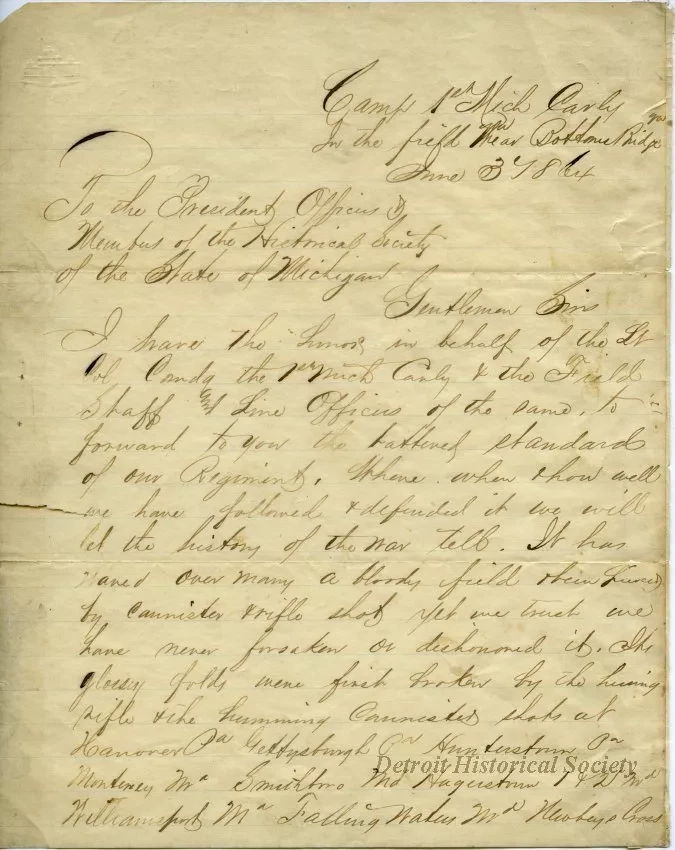 Camp 1st Mich Cavly
In the field Near Bottoms Bridge Va
June 3d / 864
To the President Officers &
Members of the Historical Society
of the State of Michigan
Gentlemen Sirs
I have the honor, in behalf of the Lt
Col Comdg the 1st Mich Cavly & the Field
Staff and Line Officers of the same, to
forward to you the tattered standard
of our Regiment. Where when & how well
we have followed & defended it we will
let the history of the war tell. It has
waved over many a bloody field & bein
by cannister & rifle shot yet we trust we
have never forsaken or deshonored it. Its
glossy folds were first broken by the
rifle & the humming Cannister shots at
Hanover Pa Gettysburgh Pa Hunterstown Pa
Monterey Md Smithboro Md Hagerstown 1 & 2 Md
Williamsport Md Falling Waters Md Newbys Cross
Detroit Historical Society